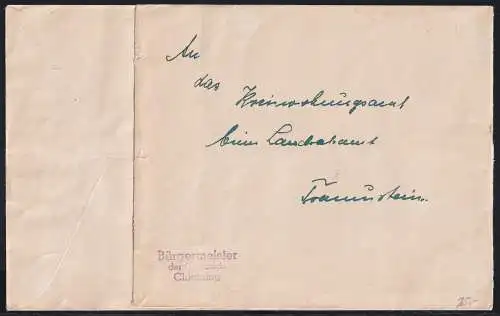 An
das Kreiswohnungsamt
beim Landratsamt
Traunstein.
Bürgermeister
der
Chieming